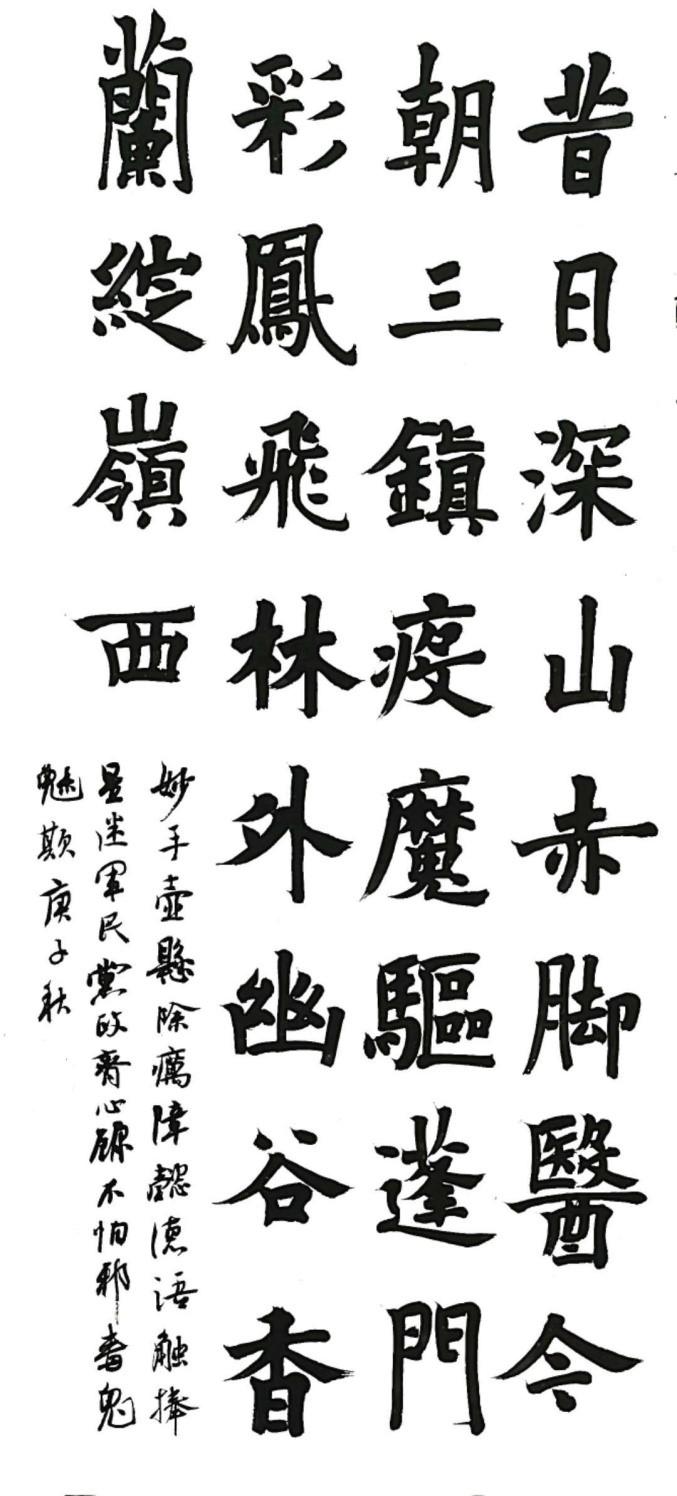 昔日深山赤脚醫今
朝三鎮疫魔驅蓬門
彩鳳飛林外幽谷香
蘭綻嶺西
妙手壺懸除癘障懿德語觸捧
星迷軍民黨政齊心願不怕邪毒鬼
魅欺庚子秋